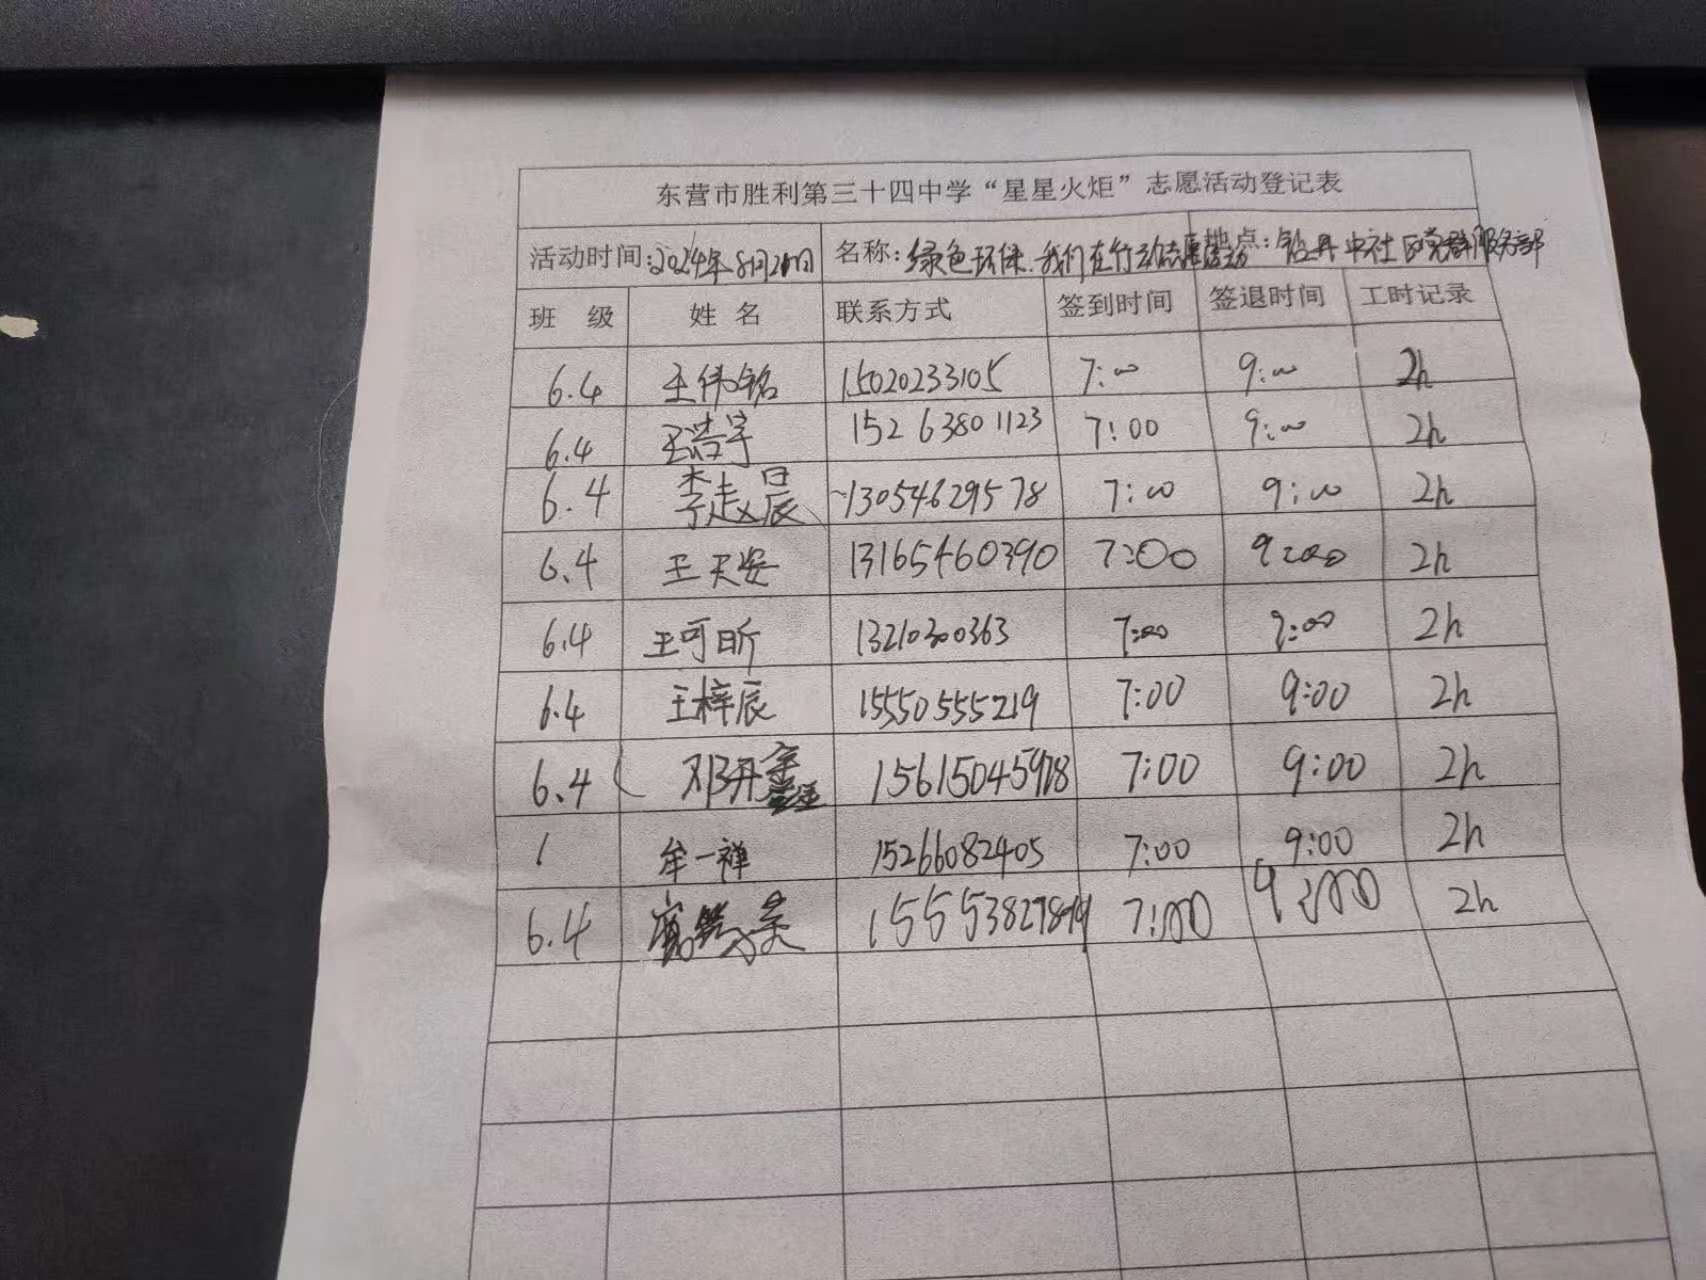 东营市胜利第三十四中学“星星火炬”志愿活动登记表
活动时间:2024年8月20日 名称:绿色环保.我们在行动志愿活动 地点: 中社区党群服务部
班 级 姓 名 联系方式 签到时间 签退时间 工时记录
6.4 王伟铭 15020233105 7:00 9:00 2h
6.4 王浩宇 15263801123 7:00 9:00 2h
6.4 李赵晨 13054629578 7:00 9:00 2h
6.4 王天安 13165460390 7:00 9:00 2h
6.4 王可昕 13210300363 7:00 9:00 2h
6.4 王梓辰 15550555219 7:00 9:00 2h
6.4 邓丹鑫 15615045918 7:00 9:00 2h
1 牟一禅 15266082405 7:00 9:00 2h
6.4 7:00 9:00 2h